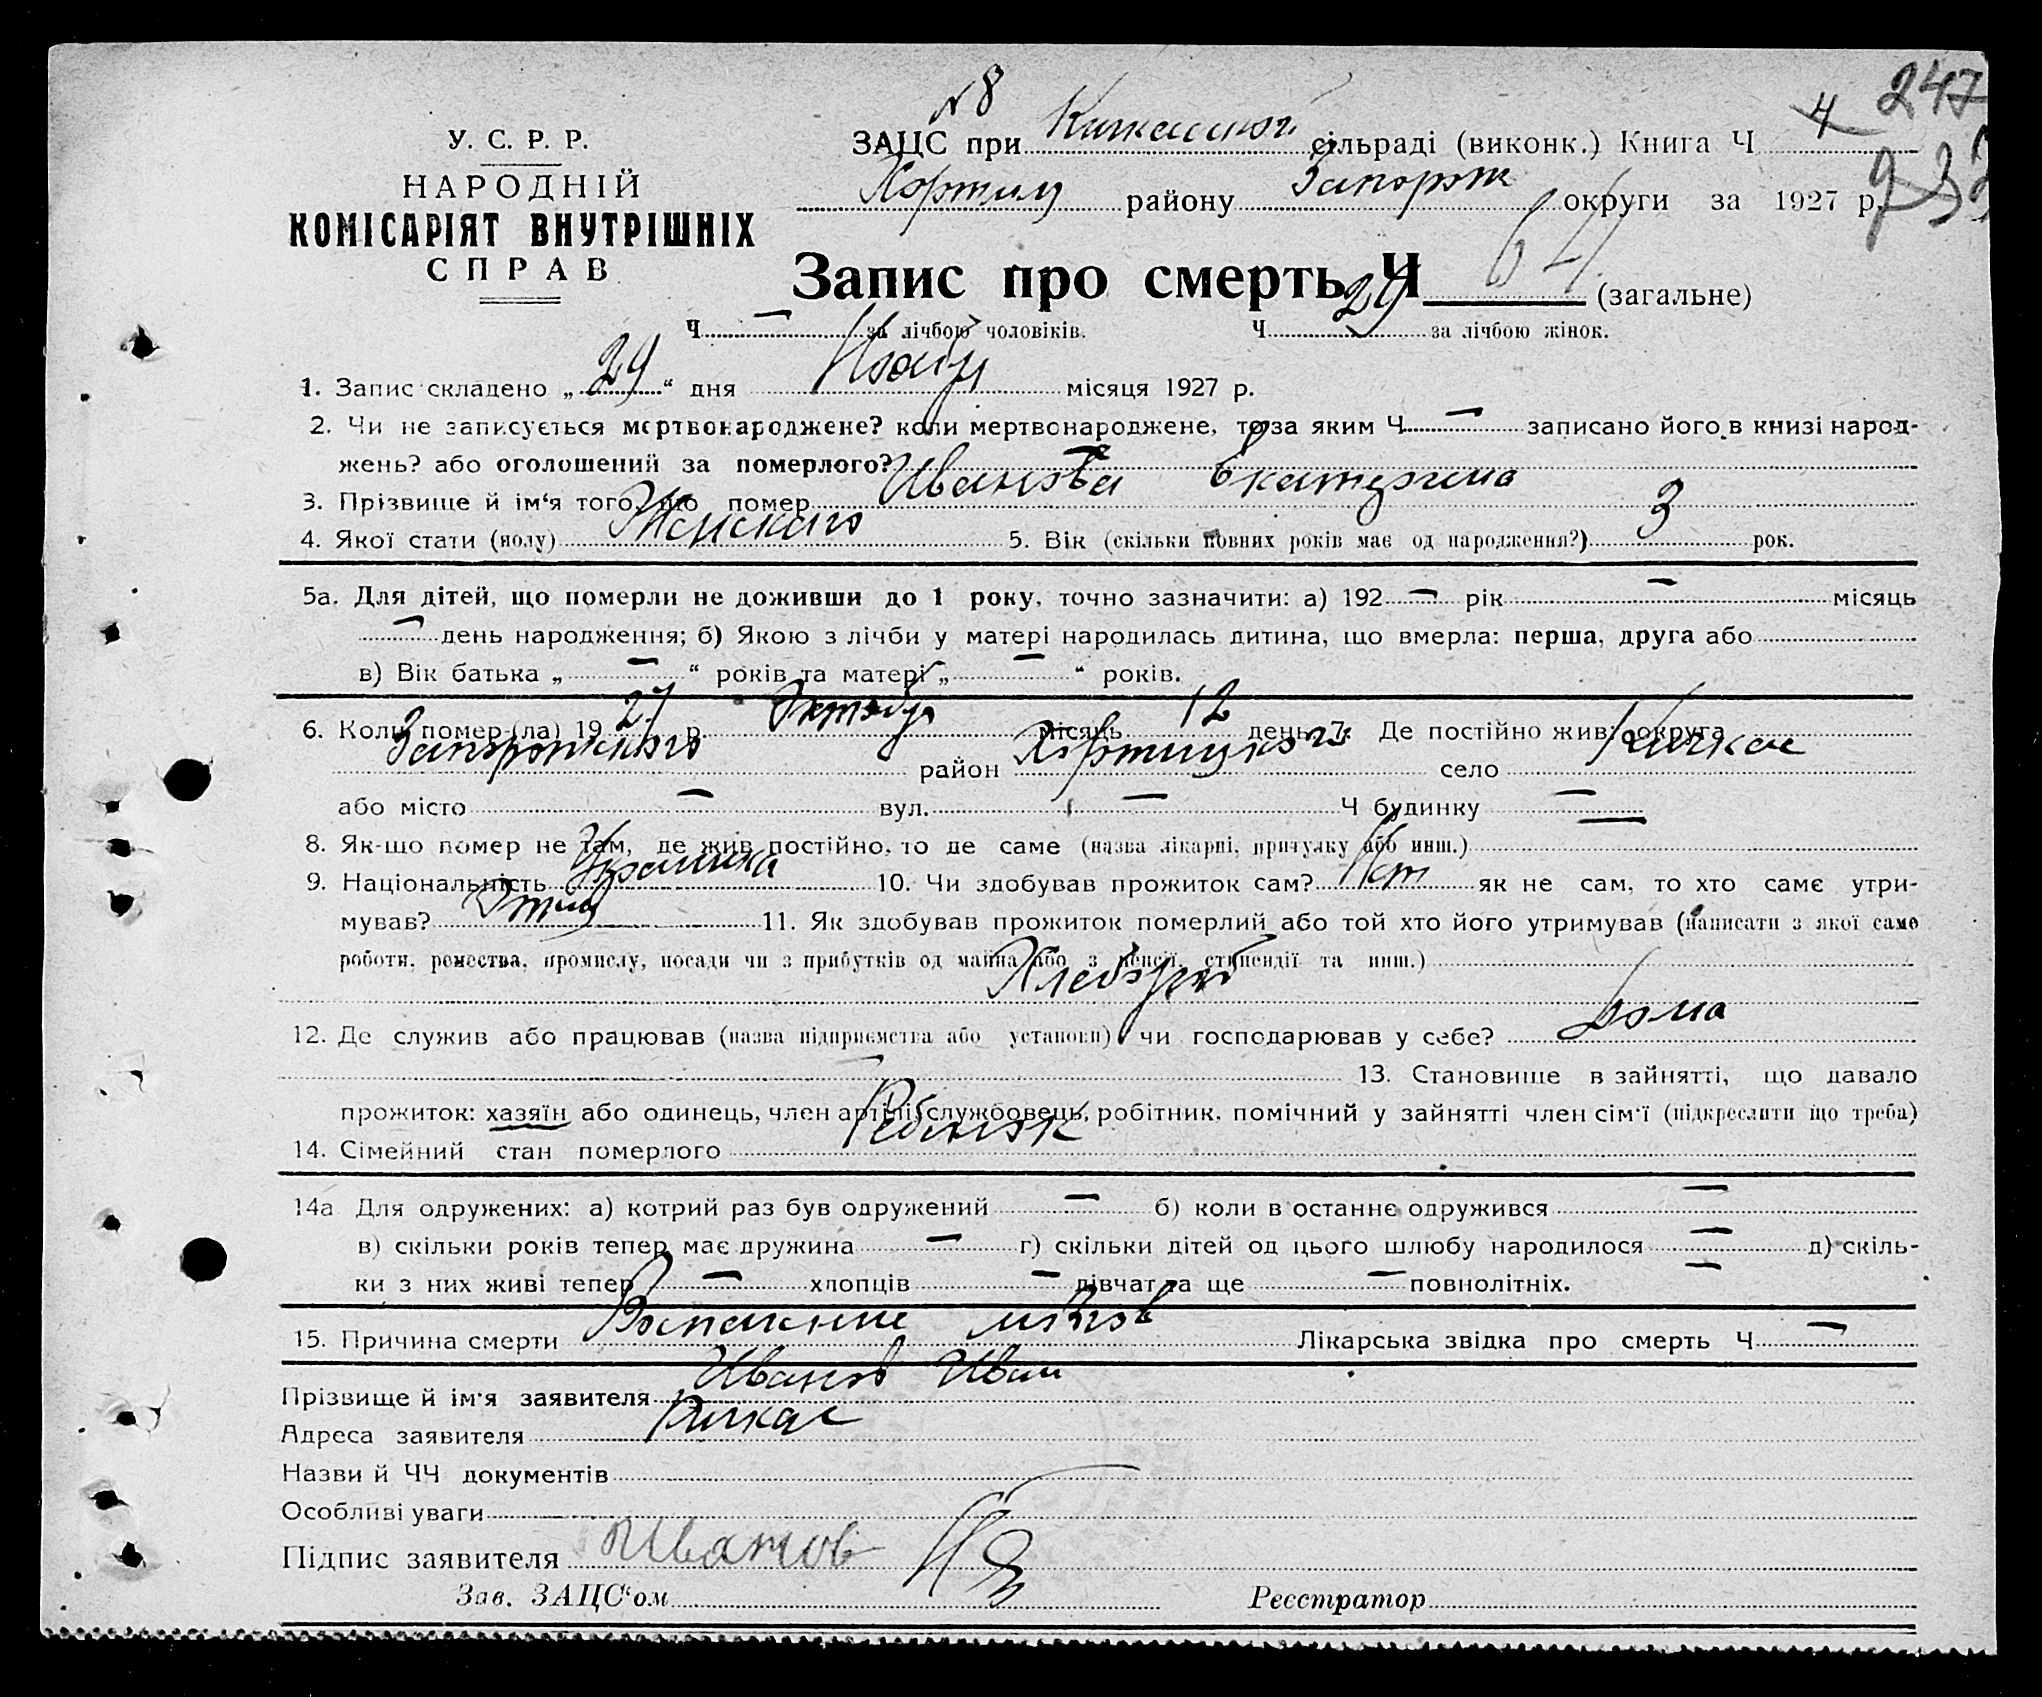 № 8
4 247
У. С. Р. Р.
ЗАЦС при Кичкаской сільраді (виконк.) Книга Ч
НАРОДНІЙ
Хортиц району Запорож округи за 1927 р.
КОМІСАРІЯТ ВНУТРІШНІХ
СПРАВ
Запис про смерть Ч 64 (загальне)
Ч — за лічбою чоловіків. Ч 29 за лічбою жінок.
1. Запис складено „29“ дня Нояб місяця 1927 р.
2. Чи не записується мертвонароджене? коли мертвонароджене, то за яким Ч — записано його в книзі народ-
жень? або оголошений за померлого? —
3. Прізвище й ім‘я того, що помер Иванова Екатерина
4. Якої стати (полу) Женского 5. Вік (скільки повних років має од народження?) 3 рок.
5а. Для дітей, що померли не доживши до 1 року, точно зазначити: а) 192 — рік — місяць
— день народження; б) Якою з лічби у матері народилась дитина, що вмерла: перша, друга або
в) Вік батька „ — “ років та матері „ — “ років.
6. Коли помер (ла) 1927 р. Октяб місяць 12 день 7. Де постійно жив: округа
Запорожского район Хортицкого село Кичкас
або місто — вул. — Ч будинку —
8. Як-що помер не там, де жив постійно, то де саме (назва лікарні, притулку або инш.)
9. Національність Украинка 10. Чи здобував прожиток сам? Нет як не сам, то хто саме утри-
мував? Отец 11. Як здобував прожиток померлий або той хто його утримував (написати з якої саме
роботи, ремества, промислу, посади чи з прибутків од майна або з пенсії, стипендії та инш.)
Хлебороб
12. Де служив або працював (назва підприємства або установи) чи господарював у себе? Дома
— 13. Становище в зайнятті, що давало
прожиток: хазяїн або одинець, член артілі, службовець, робітник, помічний у зайнятті член сім‘ї (підкреслити що треба)
14. Сімейний стан померлого Ребенок
14а Для одружених: а) котрий раз був одружений — б) коли в останнє одружився —
в) скільки років тепер має дружина — г) скільки дітей од цього шлюбу народилося — д) скіль-
ки з них живі тепер — хлопців — дівчат та ще — повнолітніх. —
15. Причина смерти Воспаление мозгов Лікарська звідка про смерть Ч —
Прізвище й ім‘я заявителя Иванов Иван
Адреса заявителя Кичкас
Назви й ЧЧ документів
Особливі уваги
Підпис заявителя Иванов
Зав. ЗАЦС‘ом Реєстратор